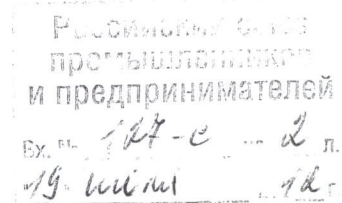 Российский союз
промышленников
и предпринимателей
Вх. № 127-с 2 л.
19 июля 12 г.